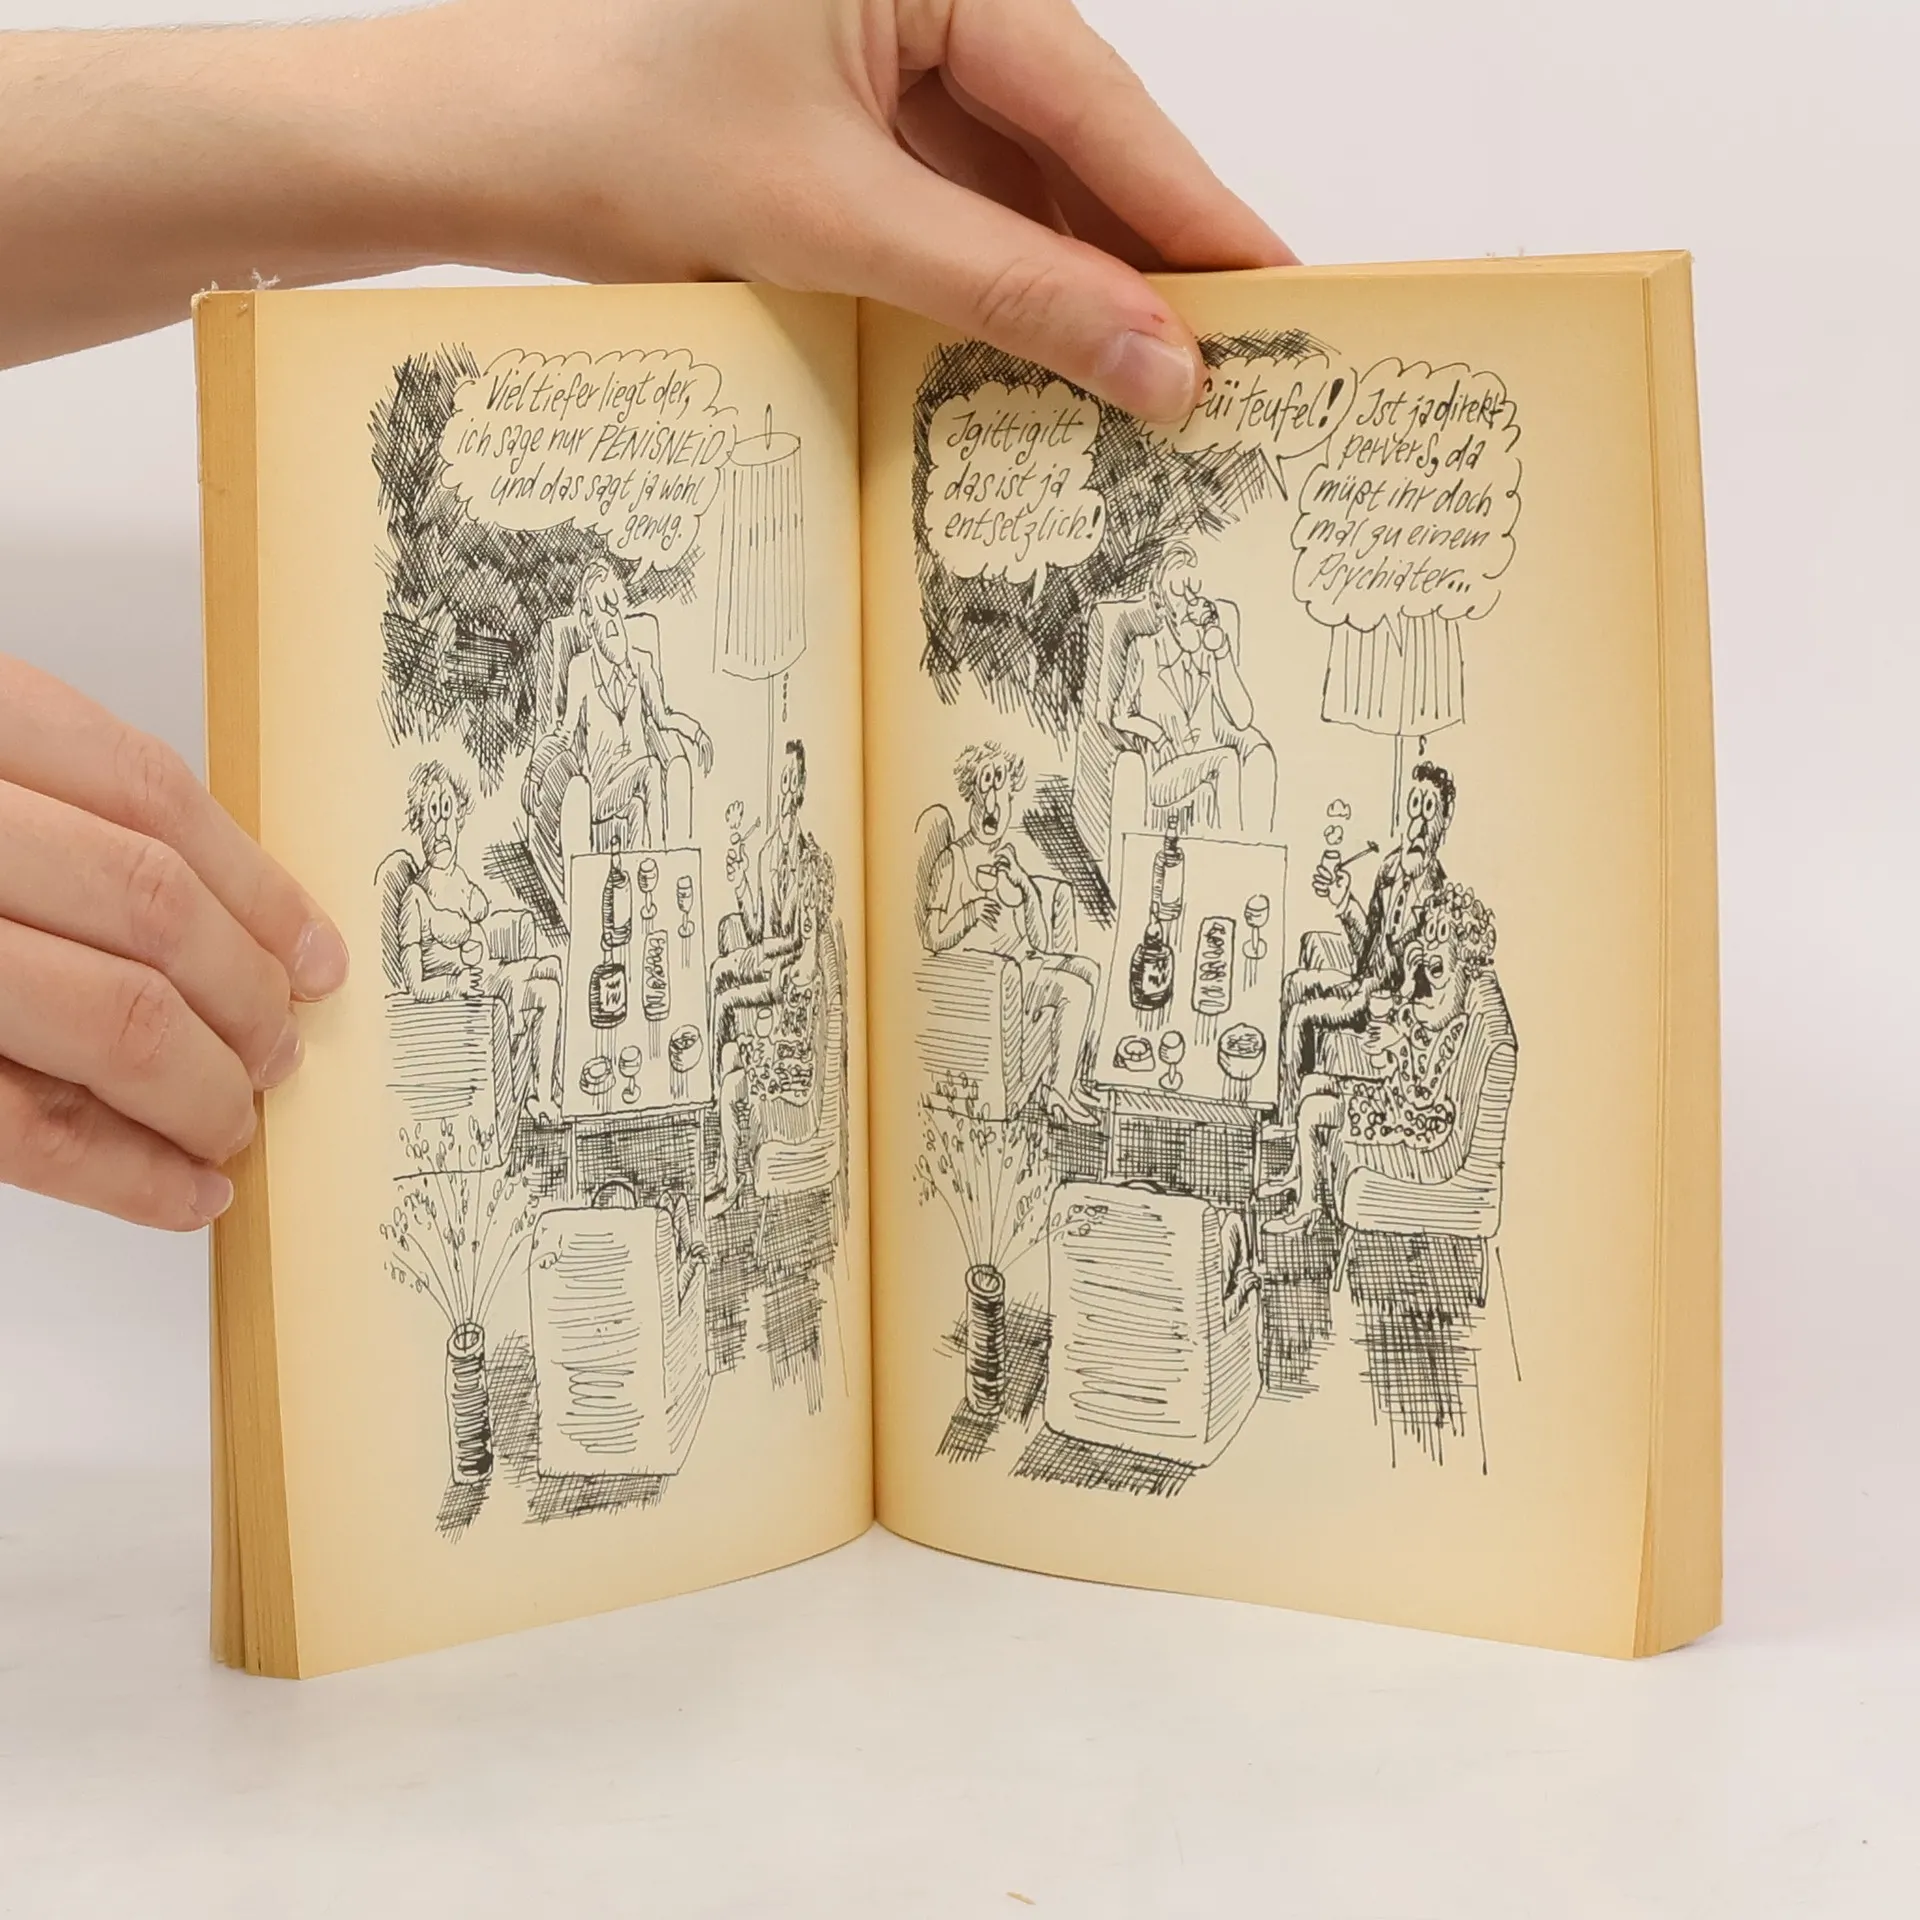 Viel tiefer liegt der,
ich sage nur PENISNEID
und das sagt ja wohl
genug.
Jgittigitt
das ist ja
entsetzlich!
füi teufel!
Jst ja direkt
pervers, da
müßt ihr doch
mal zu einem
Psychiater...